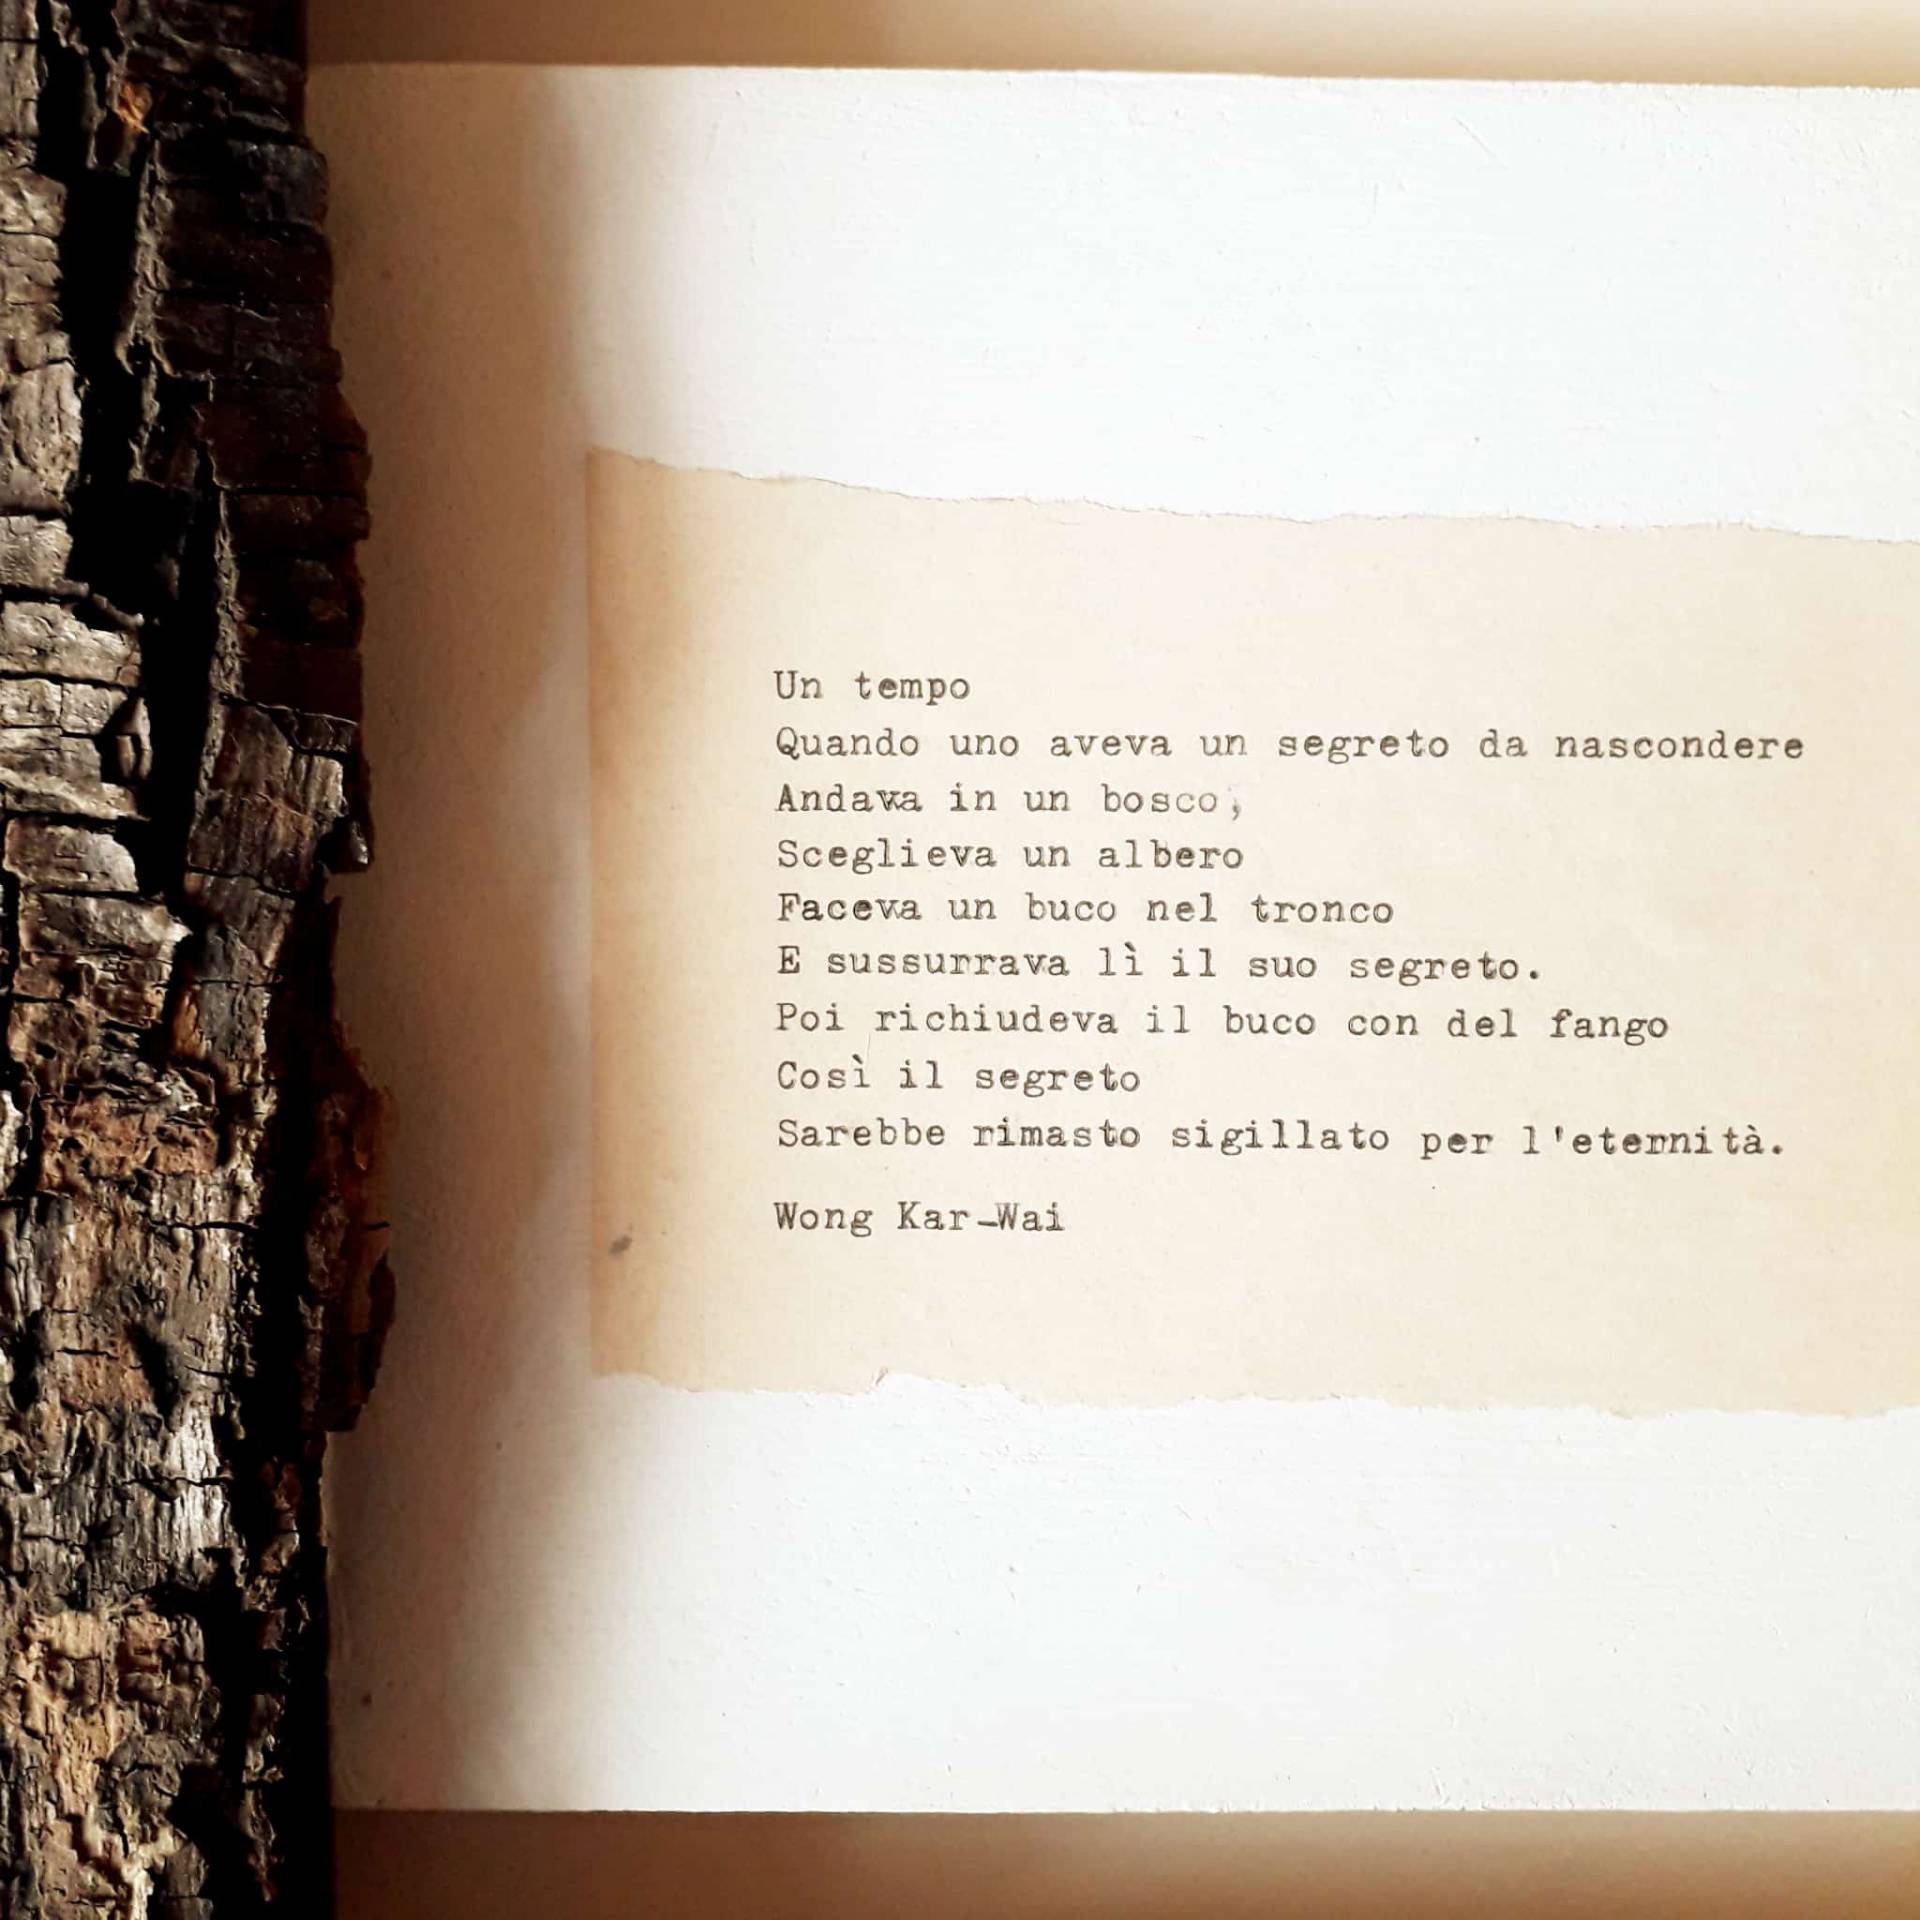 Un tempo
Quando uno aveva un segreto da nascondere
Andava in un bosco,
Sceglieva un albero
Faceva un buco nel tronco
E sussurrava lì il suo segreto.
Poi richiudeva il buco con del fango
Così il segreto
Sarebbe rimasto sigillato per l'eternità.
Wong Kar-Wai